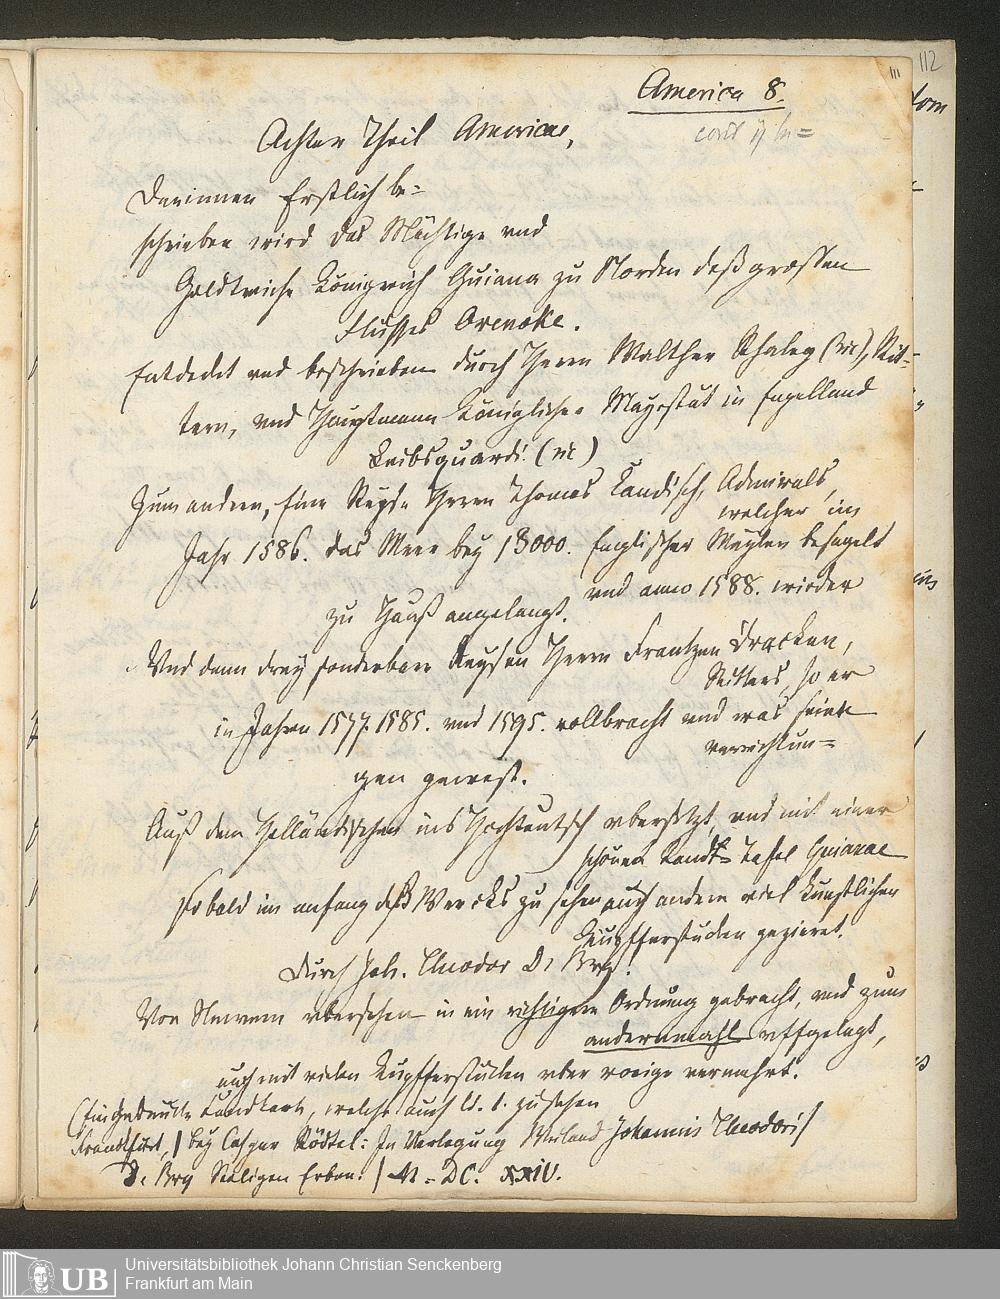 112
111
America 8.
Achter Theil Americae,
Darinnen Erstlich be=
schrieben wird das Mächtige vnd
Goldtreiche Königreich Guiana zu Norden deß grossen
Flusses Orenoke.
Entdeckt vnd beschrieben durch Herrn Walther Rhaleg (sic), Rit=
tern, vnd Hauptmann Königlicher Mayestät in Engelland
Leibsguardi. (sic)
Zum andern, Eine Reyse Herrn Thomas Candisch, Admirals,
welcher im
Jahr 1586. das Meer bey 13000. Englischer Meylen besegelt
vnd anno 1588. wieder
zu Hauß angelangt.
Vnd denn drey sonderbare Reysen Herrn Frantzen Dracken,
Ritters, so er
in Jahren 1577. 1585. vnd 1595. vollbracht vnd was seine
verrichtun=
gen gewest.
Auß dem Holländischen ins Hochteutsch vbersetzt, vnd mit einer
schönen Landt=Tafel Guianae
so bald im anfang deß Wercks zu sehen auch andern viel kunstlichen
Kupfferstucken gezieret.
Durch Joh. Theodor De Bry.
Von Newem vbersehen in ein richtigere Ordnung gebracht, vnd zum
andernmahl vffgelegt,
auch mit vielen Kupfferstucken vber vorige vermehrt.
(Eingedruckte Landkarte, welche auch zusehen
Franckfurt, | bey Caspar Rödtel: In Verlegung Weiland Johannis Theodori |
De Bry Seeligen Erben. | M. DC. XXIV.
UB
Universitätsbibliothek Johann Christian Senckenberg
Frankfurt am Main